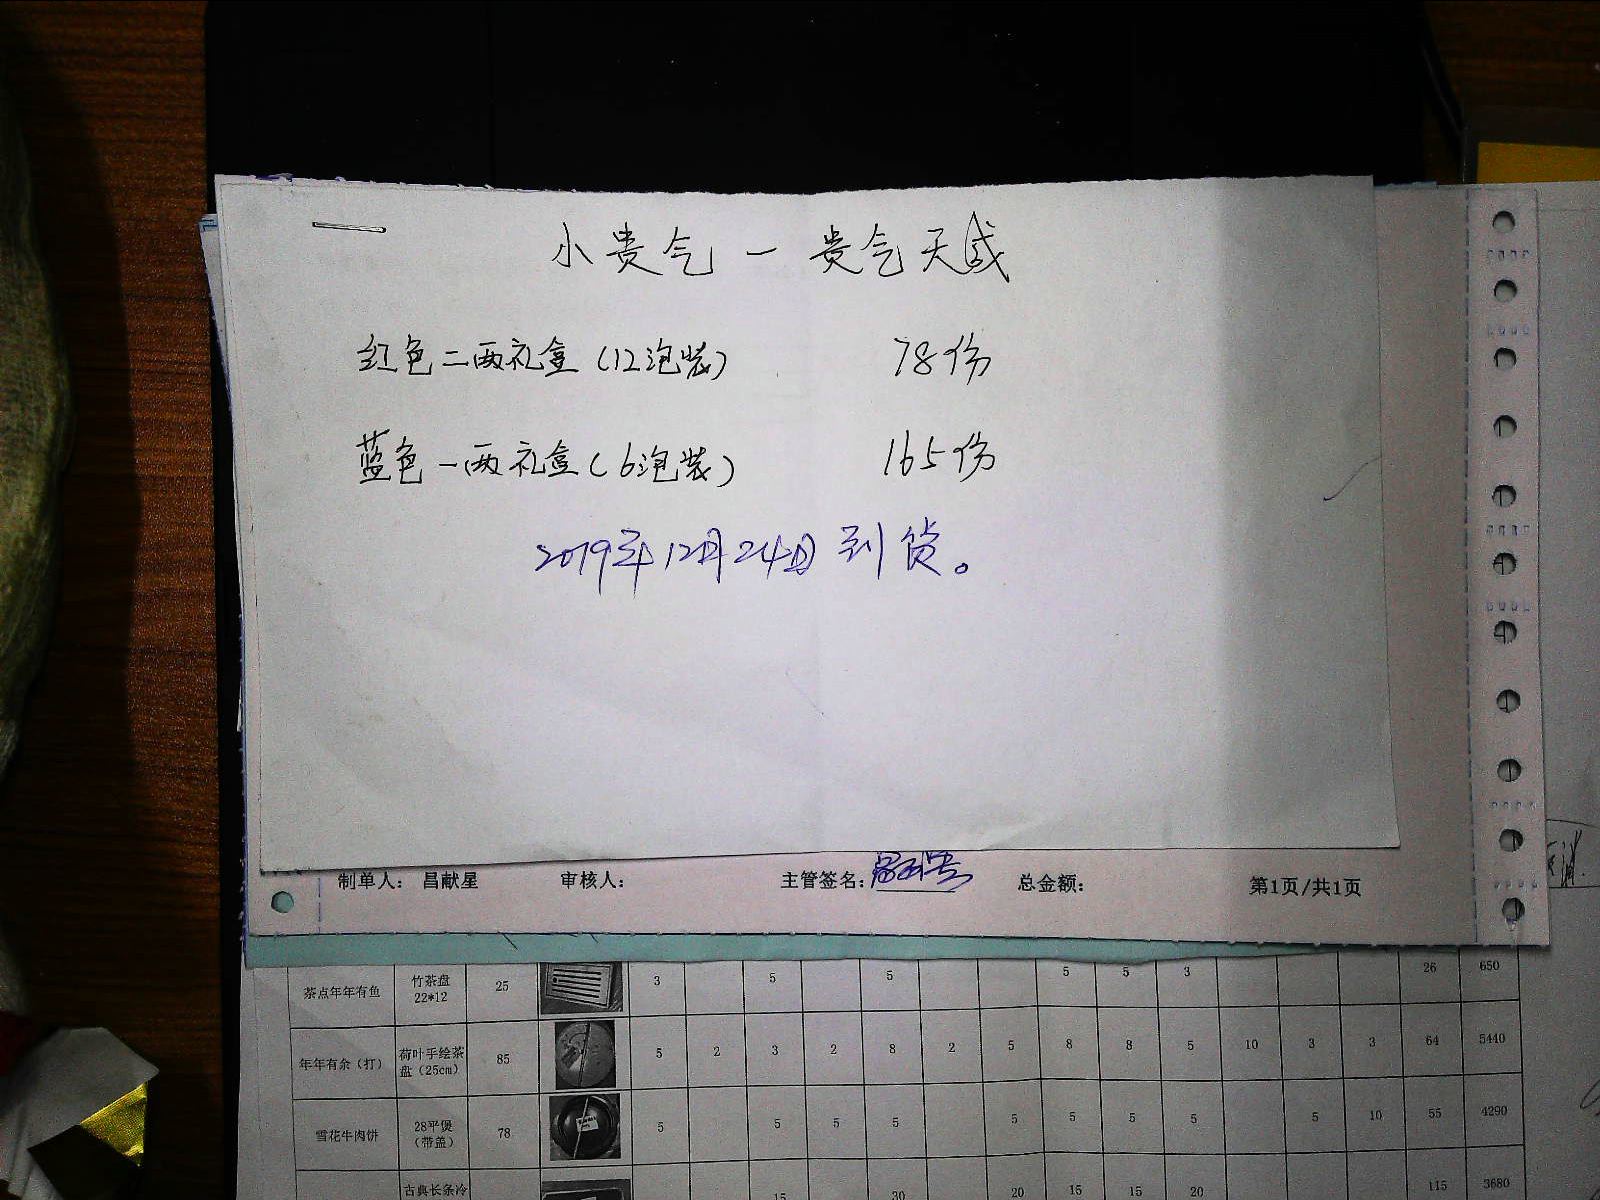 小贵气一贵气天成
红色二两礼盒(12泡装) 78份
蓝色一两礼盒(6泡装) 165份
2019年12月24日到货。
制单人： 昌献星 审核人： 主管签名： 总金额： 第1页/共1页
茶点年年有鱼 竹茶盘 22*12 25 3 5 5 5 5 3 26 650
年年有余（打） 荷叶手绘茶盘（25cm） 85 5 2 3 2 8 2 5 8 8 5 10 3 3 64 5440
雪花牛肉饼 28平煲（带盖） 78 5 5 5 5 5 5 5 5 5 10 55 4290
古典长条冷 15 30 20 15 15 20 115 3680